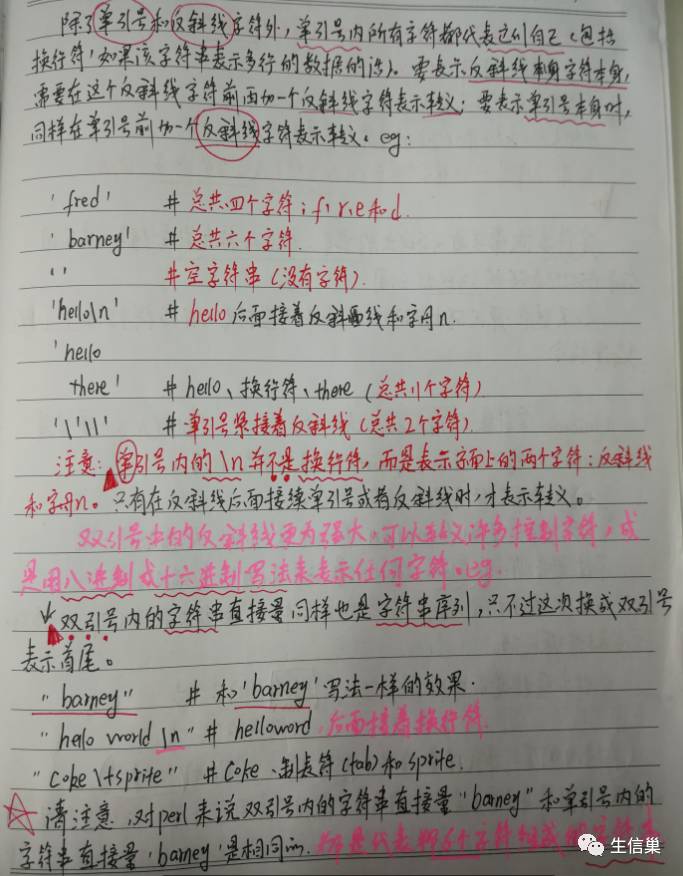 除了单引号和反斜线字符外,单引号内所有字符都代表它们自己(包括
换行符,如果该字符串表示多行的数据的话)。要表示反斜线本身字符本身,
需要在这个反斜线字符前再加一个反斜线字符表示转义;要表示单引号本身时,
同样在单引号前加一个反斜线字符表示转义。eg:
'fred' # 总共四个字符:f,r,e和d.
'barney' # 总共六个字符.
'' #空字符串(没有字符).
'hello\n' # hello后面接着反斜线和字母n.
'hello
there' # hello、换行符、there(总共11个字符)
'\'\\' # 单引号紧接着反斜线(总共2个字符)
注意:单引号内的\n并不是换行符,而是表示字面上的两个字符:反斜线
和字母n。只有在反斜线后面接续单引号或者反斜线时,才表示转义。
双引号中的反斜线更为强大,可以转义许多控制字符,或
是用八进制或十六进制写法来表示任何字符。eg.
双引号内的字符串直接量同样也是字符串序列,只不过这次换成双引号
表示首尾。
"barney" # 和'barney'写法一样的效果.
"hello world\n" # helloword,后面接着换行符.
"Coke\tsprite" # Coke、制表符(tab)和sprite.
请注意,对perl来说双引号内的字符串直接量"barney"和单引号内的
字符串直接量'barney'是相同的。都是代表那6个字符组成的字符串
生信巢